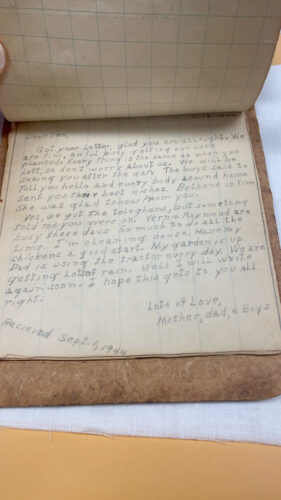 Dear Son,
Got your letter, glad you are all right. We
are fine, awful busy getting our corn
planted. Every thing is the same as when you
left, so dont worry about us. We will be
seeing you after the war. The boys said to
tell you hello and every body around home
sent you their best wishes. Bethene is fine
She was glad to hear from you.
Yes, we got the telephone, but something
told me you were ok. Vern & Raymond are
busy these days. So much to do all the
time. I'm cleaning house. Have my
chickens a good start. My garden is up.
Dad is using the tractor every day. We are
getting lots of rain. Well I will write
again soon. I hope this gets to you all
right.
Lots of Love,
Mother, dad, & Boys
Recieved Sept. 1, 1944